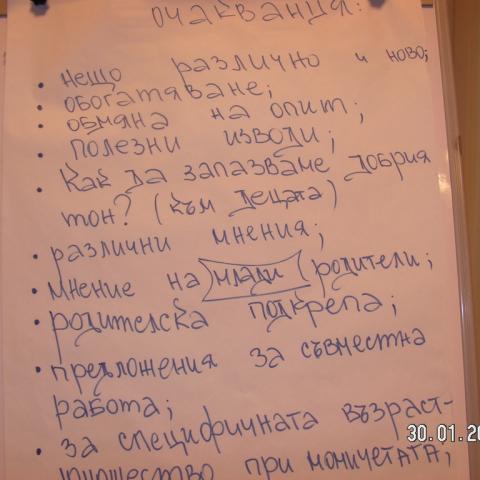 ОЧАКВАНИЯ:
• нещо различно и ново;
• обогатяване;
• обмяна на опит;
• полезни изводи;
• Как да запазваме добрия
тон? (към децата)
• различни мнения;
• мнение на млади родители;
• родителска подкрепа;
• предложения за съвместна
работа;
• за специфичната възраст-
при момичетата;
30.01.20